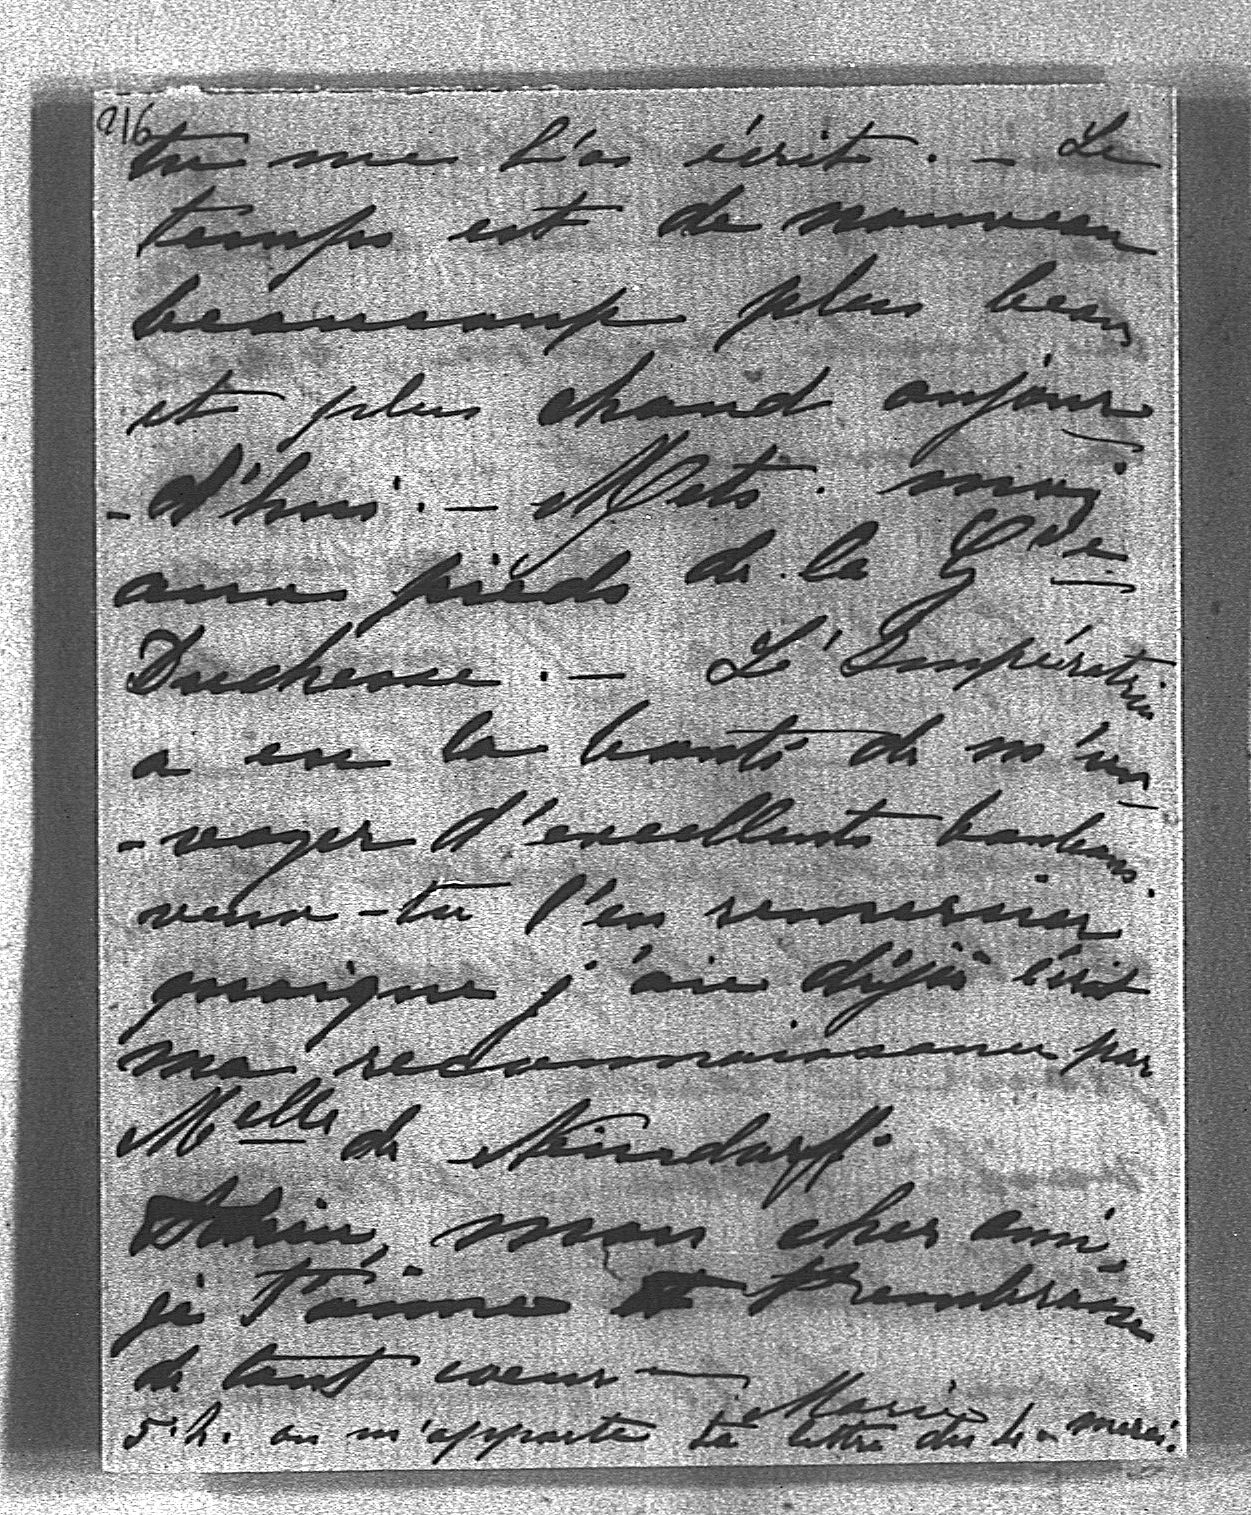 216
tu me l'as écrit. — Le
temps est de nouveau
beaucoup plus beau
et plus chaud aujour-
-d'hui. — Mets-moi
aux pieds de la Gde
Duchesse. — L'Impératrice
a eu la bonté de m'en-
-voyer d'excellents bonbons.
veux-tu l'en remercier
quoique j'aie déjà écrit
ma reconnaissance par
Melle de Neindorff.
Adieu, mon cher ami,
je t'aime et t'embrasse
de tout coeur —
Marie
5.h. on m'apporte ta lettre du 4. merci.